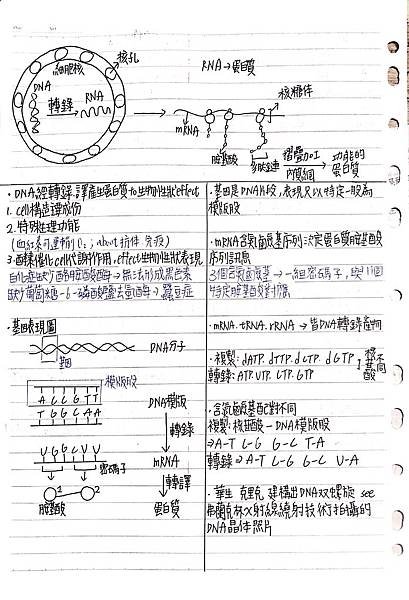 核孔
細胞核
DNA
轉錄
RNA
RNA→蛋白質
核糖体
mRNA
胺基酸
多肽鏈
摺疊加工
內質網
功能的
蛋白質
·DNA經轉錄.譯產生蛋白質 to 生物性狀 effect
1. cell構造 成份
2. 特殊生理功能
(血紅素可運輸 O₂; about 抗体 免疫)
3. 酵素催化 cell 代謝作用, effect 生物性狀表現
白化症缺少酪胺酸酶→無法形成黑色素
缺少葡萄糖-6-磷酸鹽去氫酶→蠶豆症
·基因表現圖
基因
DNA分子
模版股
A C C G T T
T G G C A A
DNA模版
轉錄
U G G C V V
密碼子
mRNA
轉譯
1
2
胺基酸
蛋白質
·基因是DNA片段,表現只以特定一股為
模版股
·mRNA含氮鹼基序列決定蛋白質胺基酸
序列訊息
3個含氮鹼基→一組密碼子,與1個
特定胺基酸對應
·mRNA. tRNA. rRNA → 皆DNA轉錄產物
·複製: dATP. dTTP. dCTP. dGTP
轉錄: ATP. VTP. CTP. GTP
核苷酸
不同
·含氮鹼基配對不同
複製: 核苷酸-DNA模版股
⇒A-T C-G G-C T-A
轉錄⇒A-T C-G G-C V-A
·華生 克里克 建構出DNA双螺旋 see
弗蘭克林X射線繞射技術拍攝的
DNA晶体照片